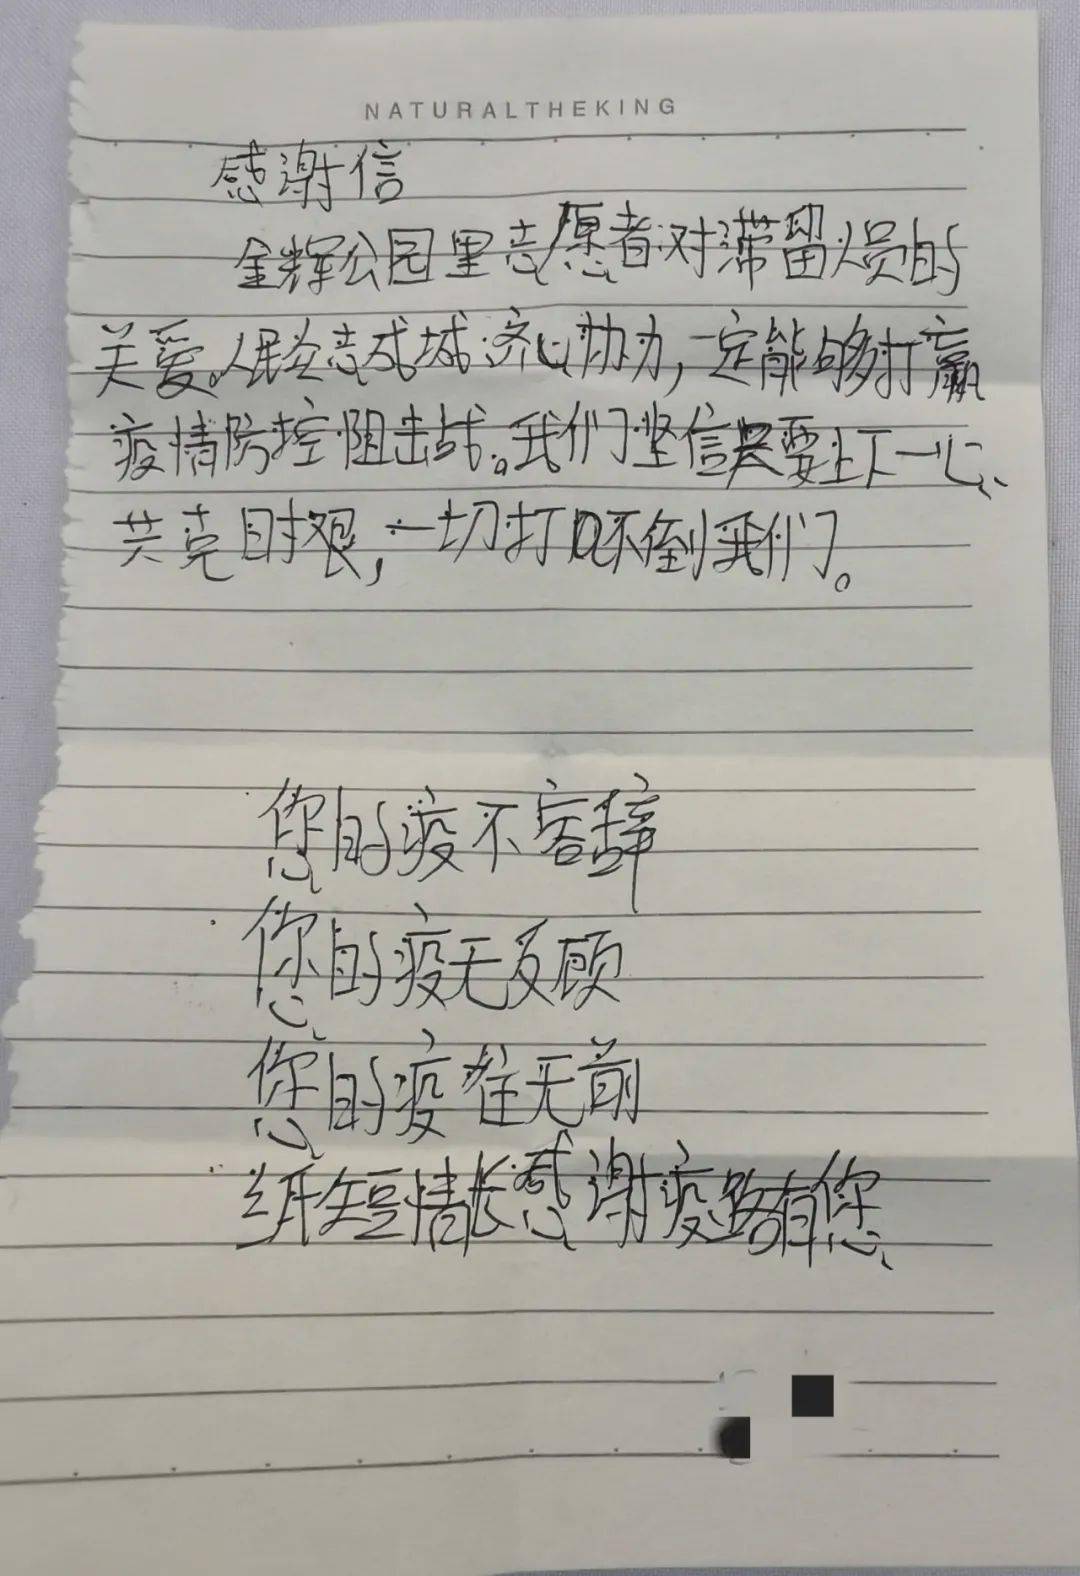 NATURALTHEKING
感谢信
金辉公园里志愿者对滞留人员的
关爱。人民众志成城济心协力，一定能够打赢
疫情防控阻击战。我们坚信只要上下一心、
共克时艰，一切打不倒我们。
您的疫不容辞
您的疫无反顾
您的疫往无前
纸短情长感谢疫路有您